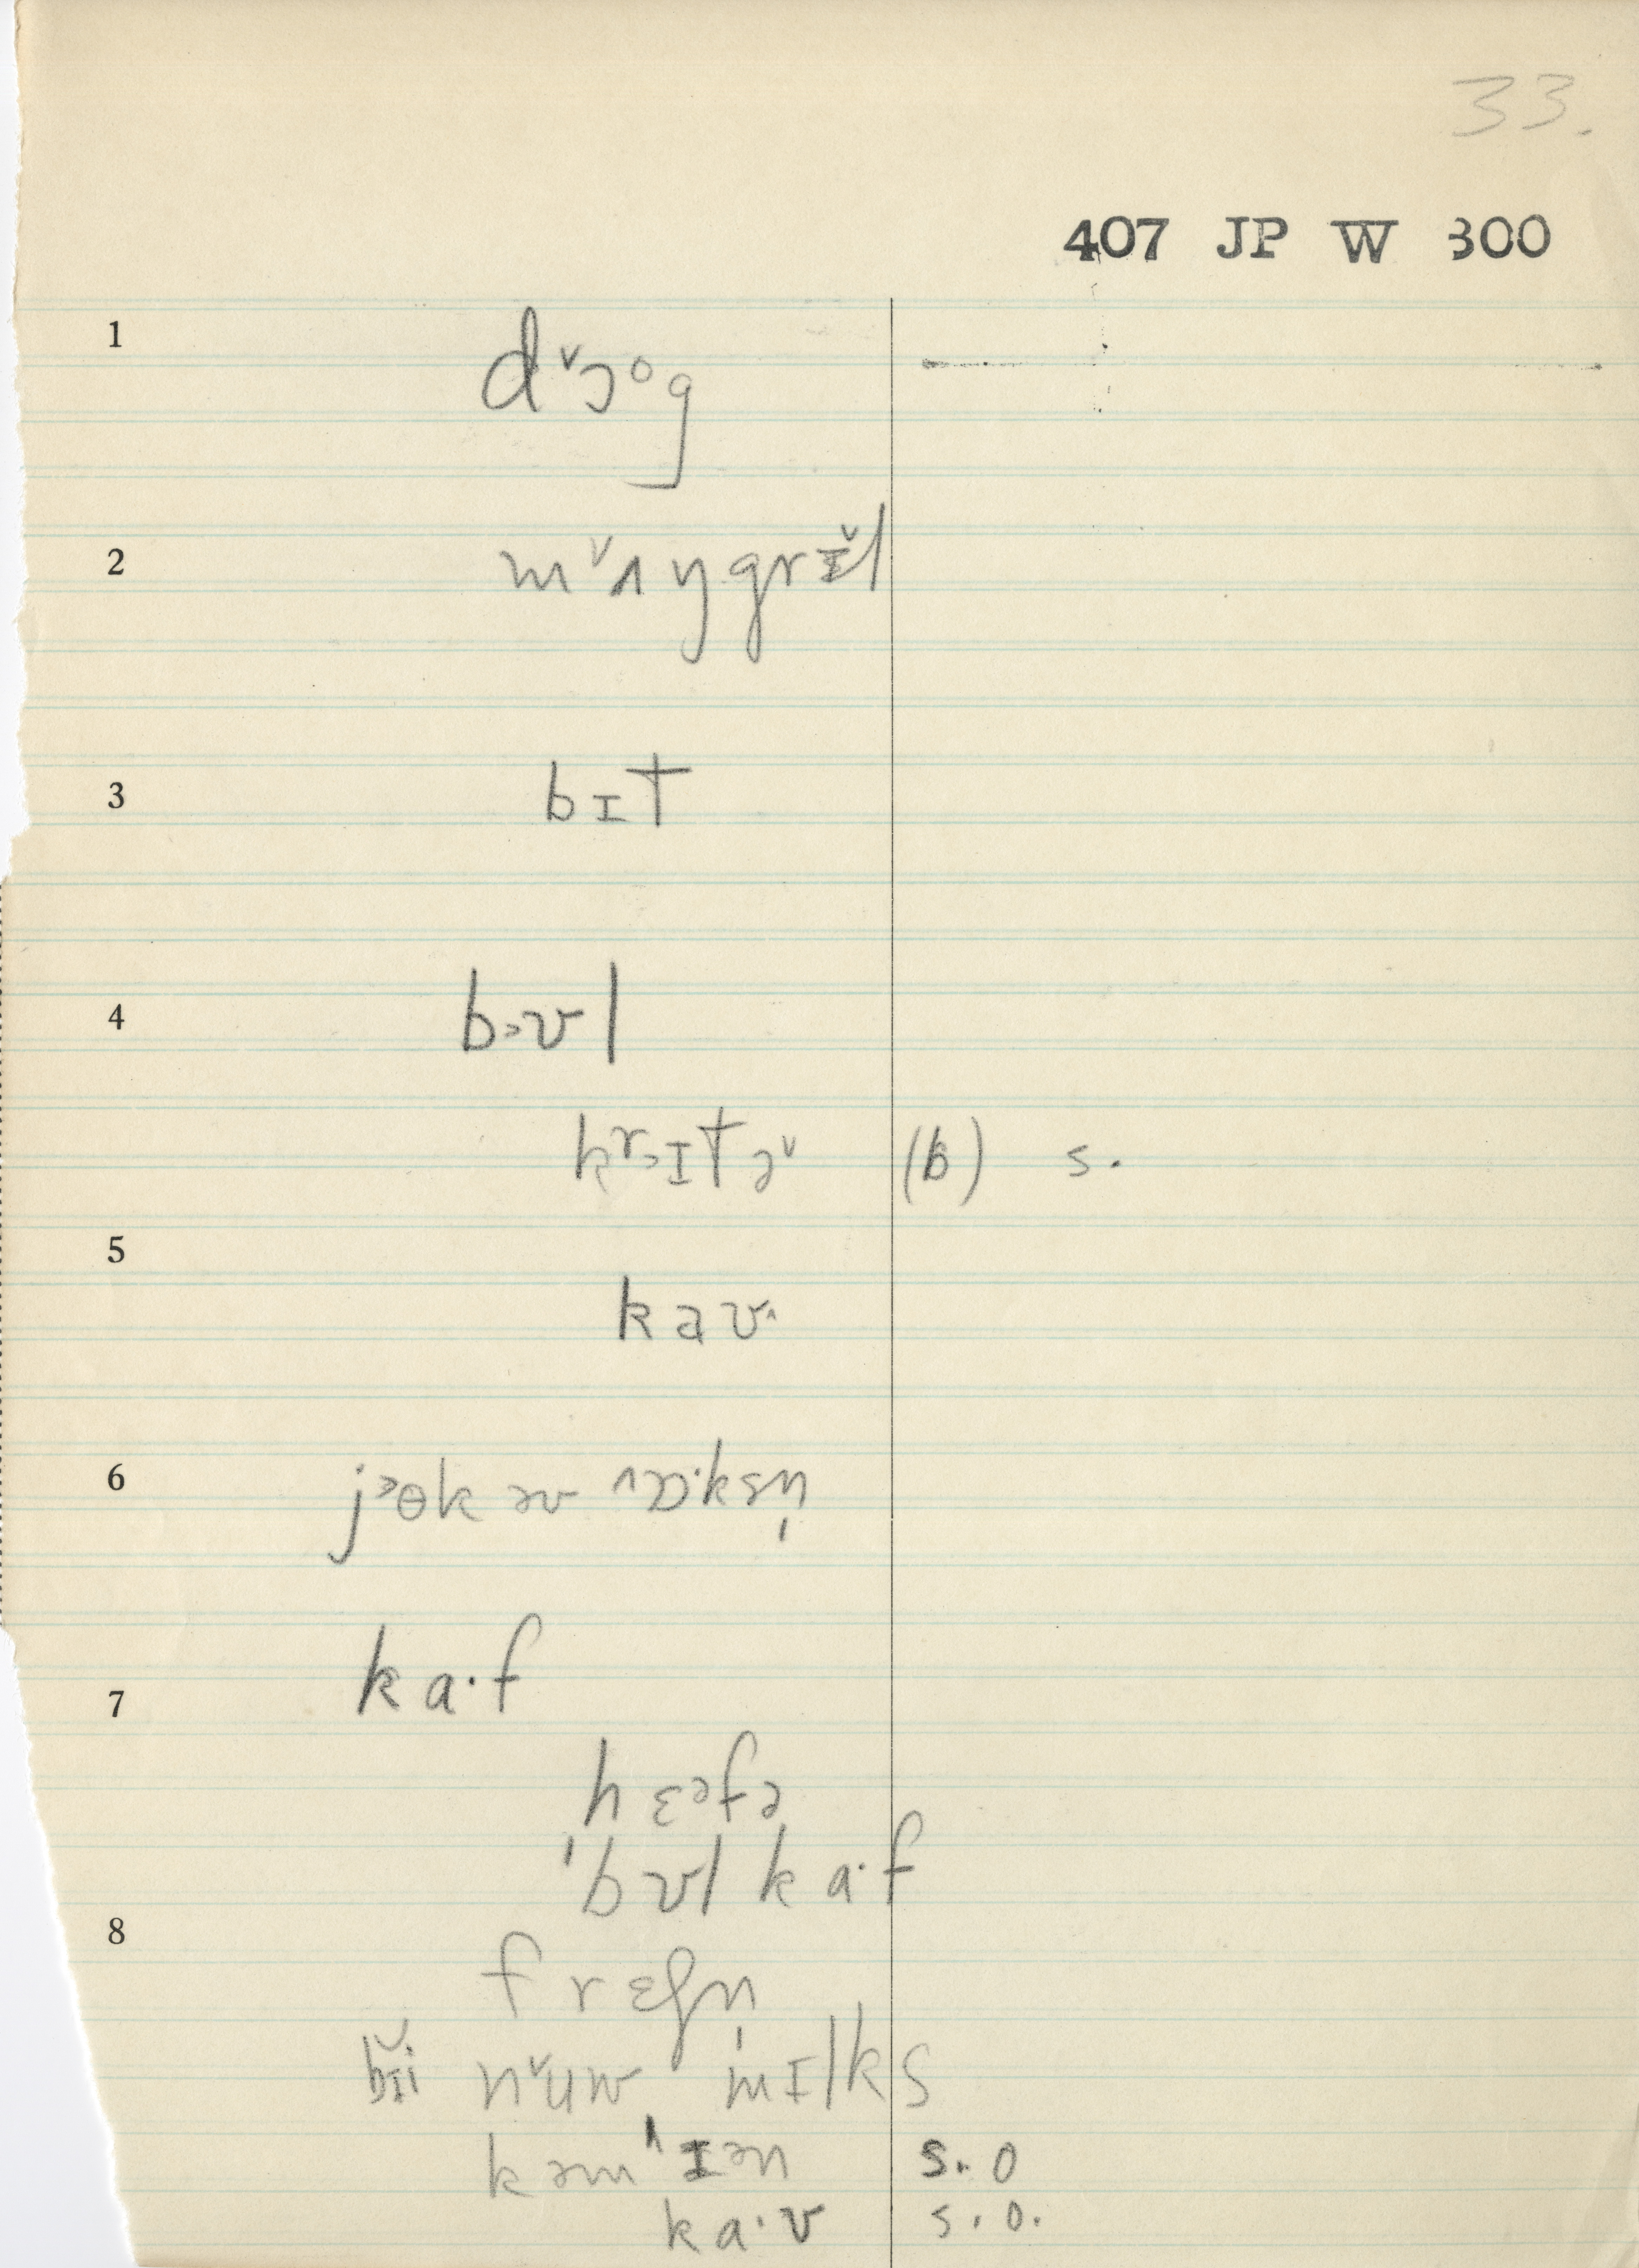 33.
407 JP W 300
1 dˇɔᵒg
2 mˇʌŋgrɪ̌l
3 bɪt
4 bɔʊl
krɔɪtəˇ (b) s.
5 kaʊ^
6 jɔθk əv ^ɒ·ksn̩
7 ka·f
hɛəfə
ˈbʊl ka·f
8 frɛʃn̩
bɪi nˇuw mɪlks
kəm^ɪən s. o
ka·ʊ s. o.